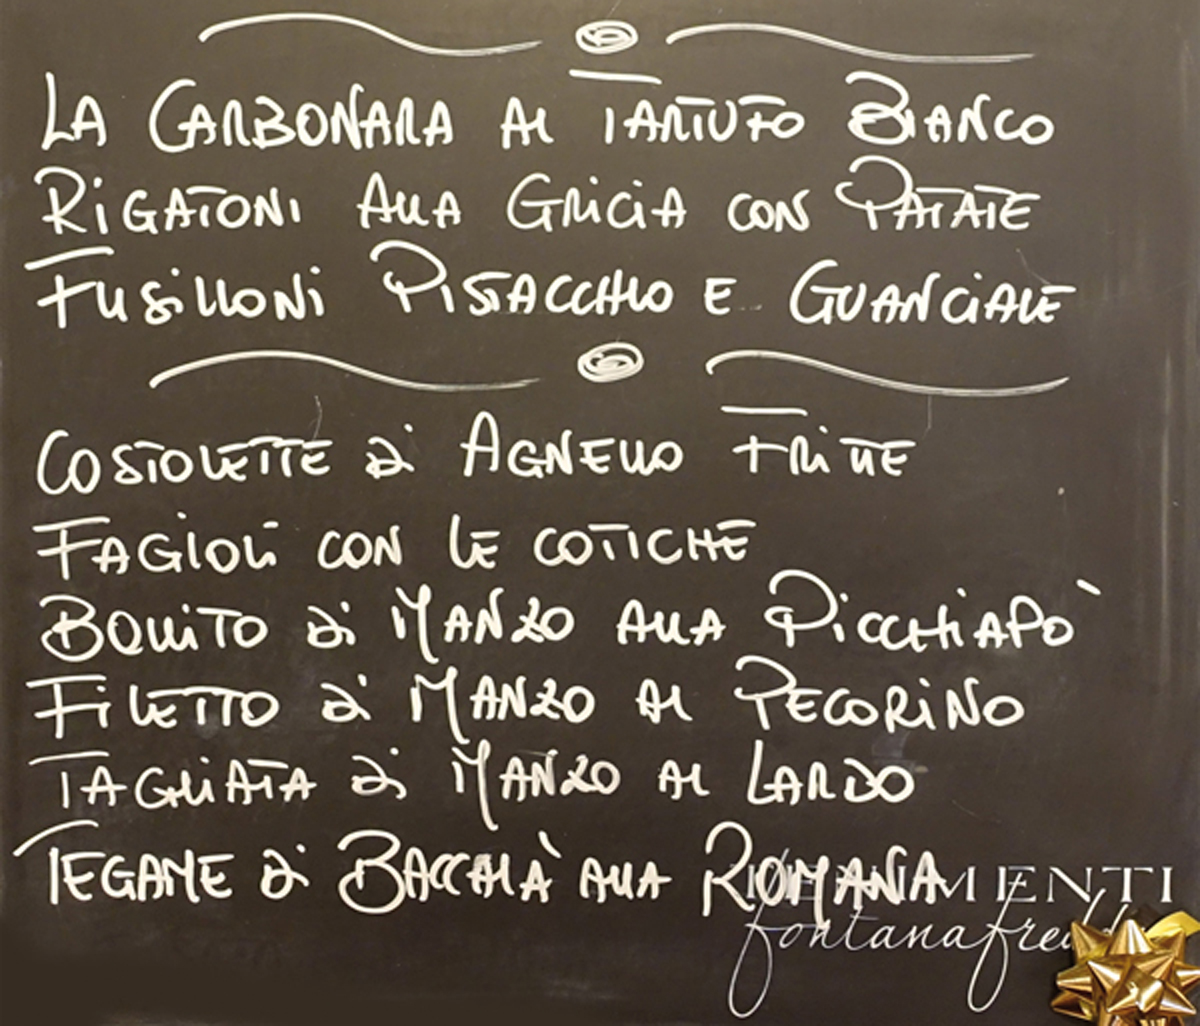 LA CARBONARA AL TARTUFO BIANCO
RIGATONI ALLA GRICIA CON PATATE
FUSILLONI PISTACCHIO E GUANCIALE
COSTOLETTE di AGNELLO FRITTE
FAGIOLI CON LE COTICHE
BOLLITO di MANZO ALLA PICCHIAPÒ
FILETTO di MANZO AL PECORINO
TAGLIATA di MANZO AL LARDO
TEGAME di BACCALÀ ALLA ROMANA
fontanafredd